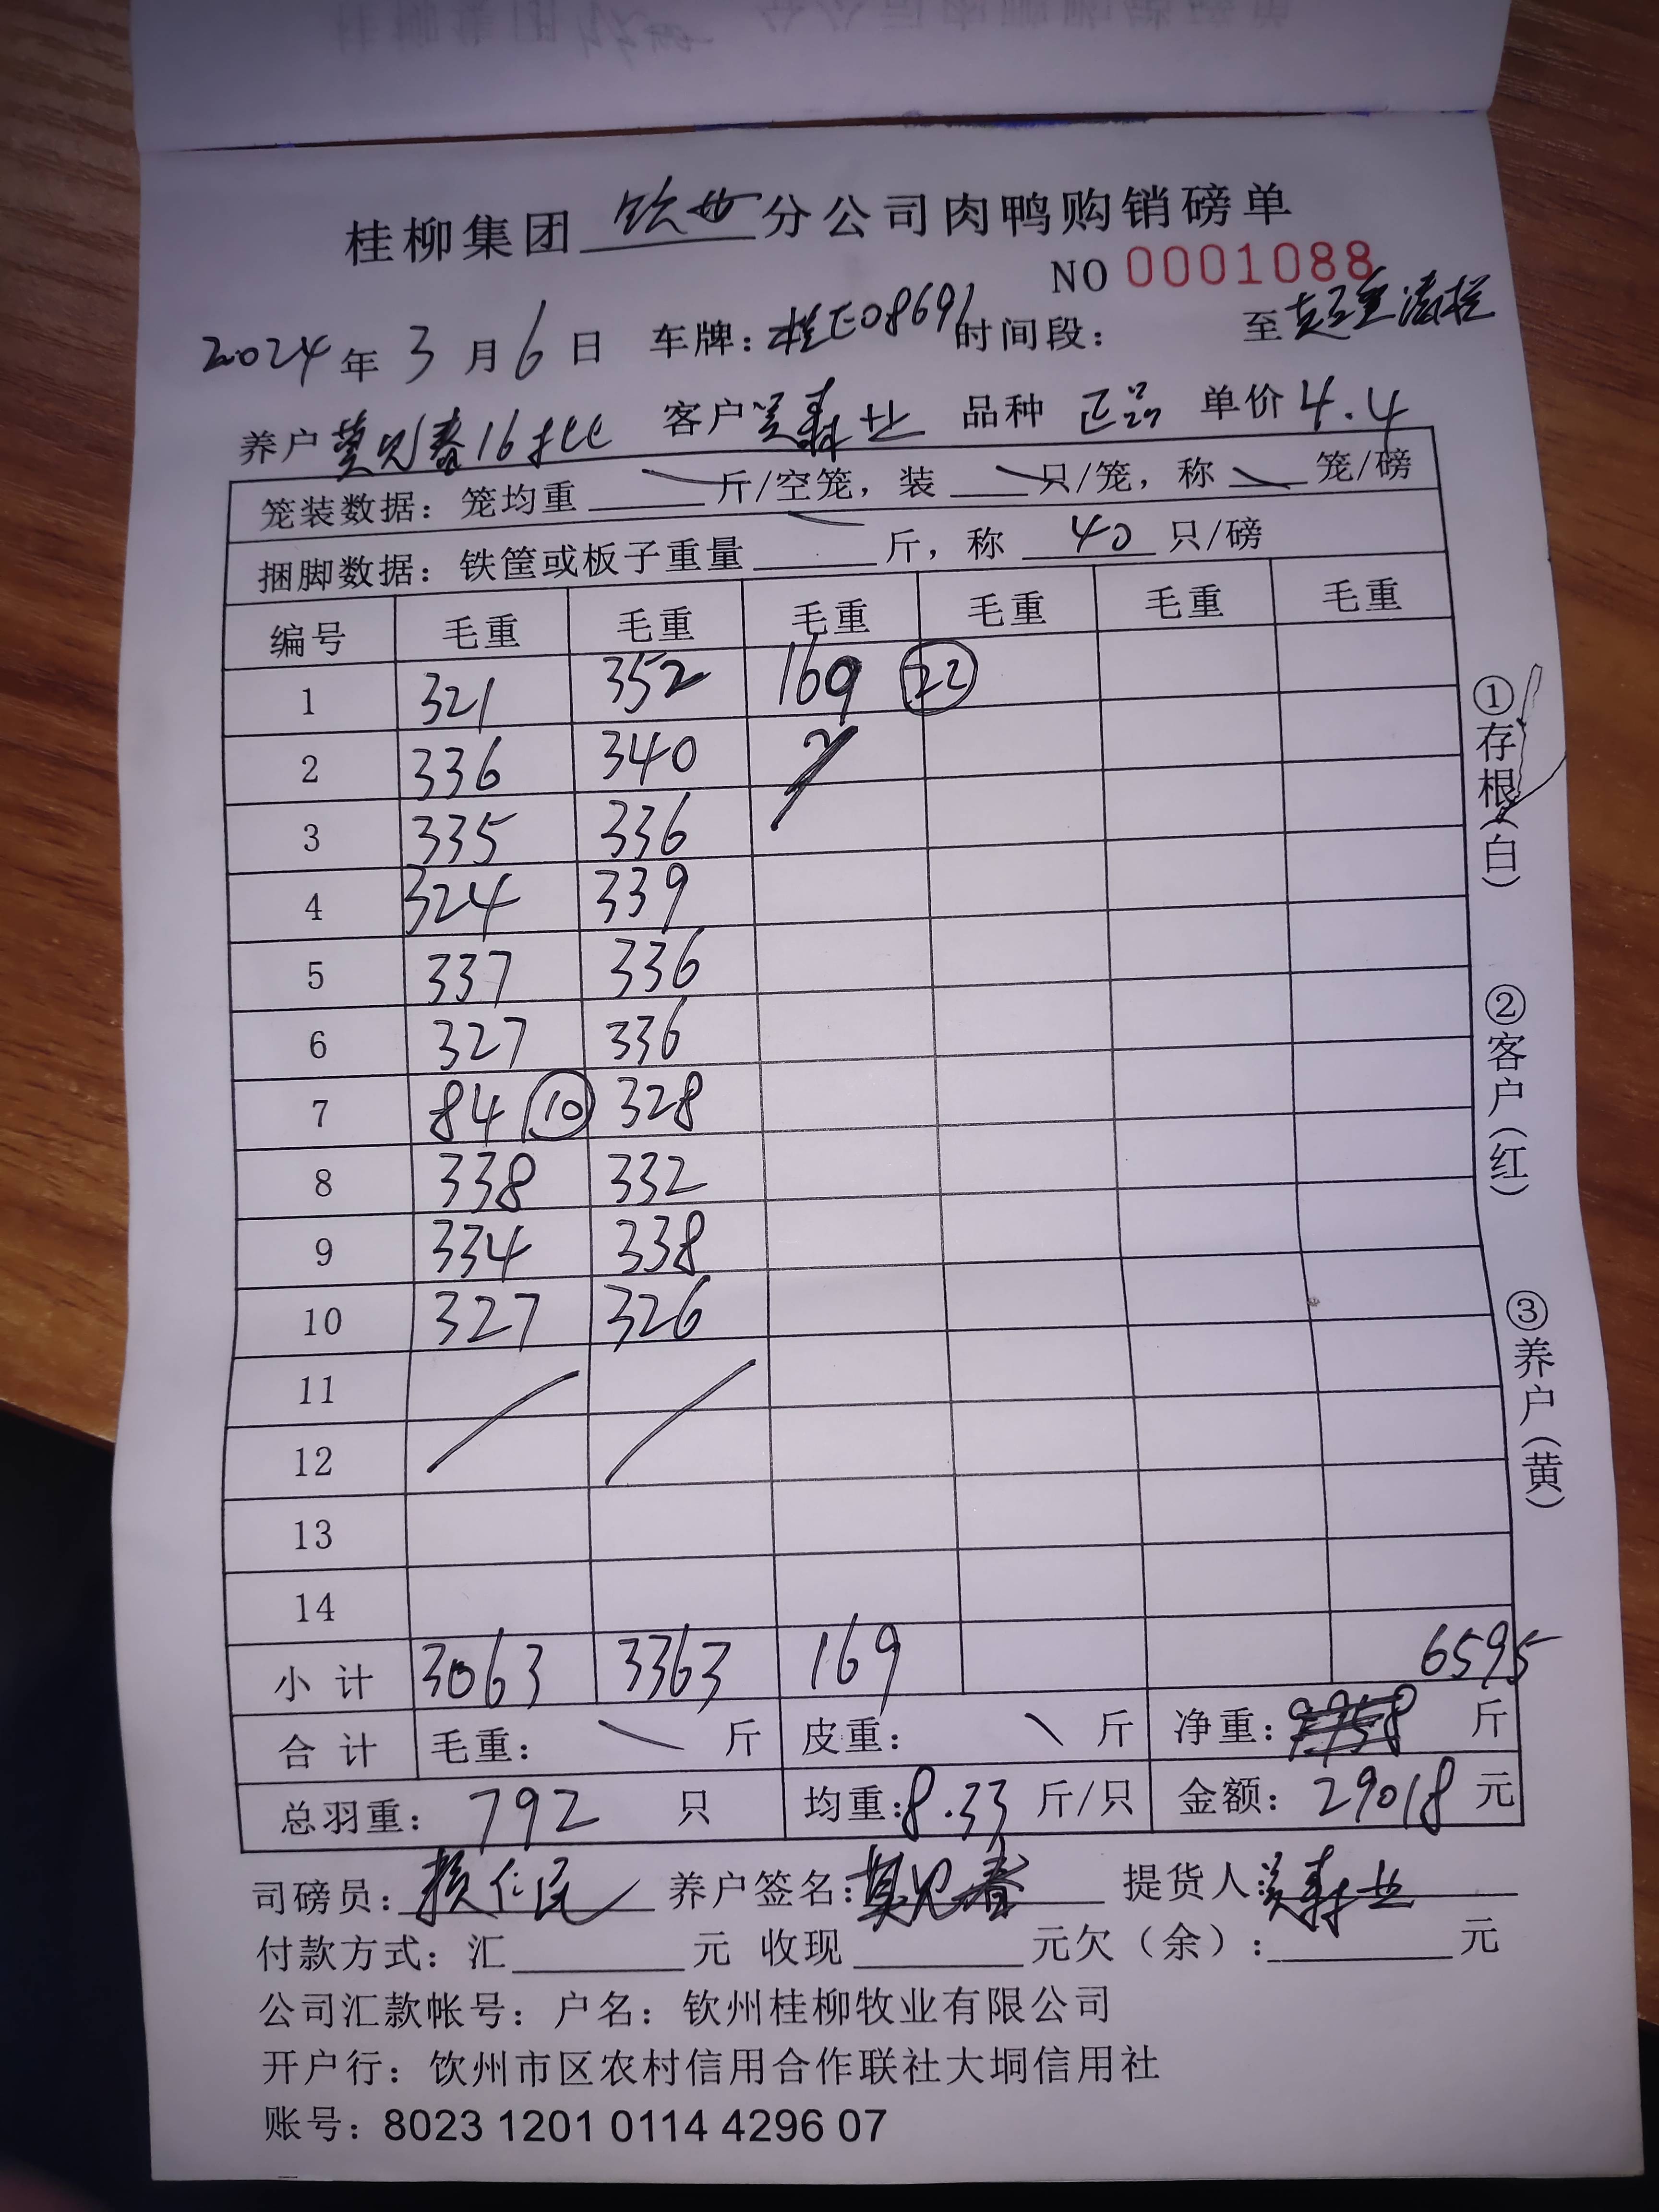 桂柳集团 钦州 分公司肉鸭购销磅单
NO 0001088
2024 年 3 月 6 日 车牌：桂E08691 时间段： 至 清栏
养户 莫见春16批 客户 吴寿 品种 正品 单价 4.4
笼装数据：笼均重 斤/空笼，装 只/笼，称 笼/磅
捆脚数据：铁筐或板子重量 斤，称 40 只/磅
编号 毛重 毛重 毛重 毛重 毛重 毛重
1 321 352 169 22
2 336 340
3 335 336
4 324 339
5 337 336
6 327 336
7 84 10 328
8 338 332
9 334 338
10 327 326
11
12
13
14
小计 3063 3363 169 6595
合计 毛重： 斤 皮重： 斤 净重： 斤
总羽重： 792 只 均重：8.33 斤/只 金额：29018 元
司磅员：仁民 养户签名：莫见春 提货人：吴寿
付款方式：汇 元 收现 元欠（余）： 元
公司汇款帐号：户名：钦州桂柳牧业有限公司
开户行：饮州市区农村信用合作联社大垌信用社
账号：8023 1201 0114 4296 07
①存根（白）
②客户（红）
③养户（黄）